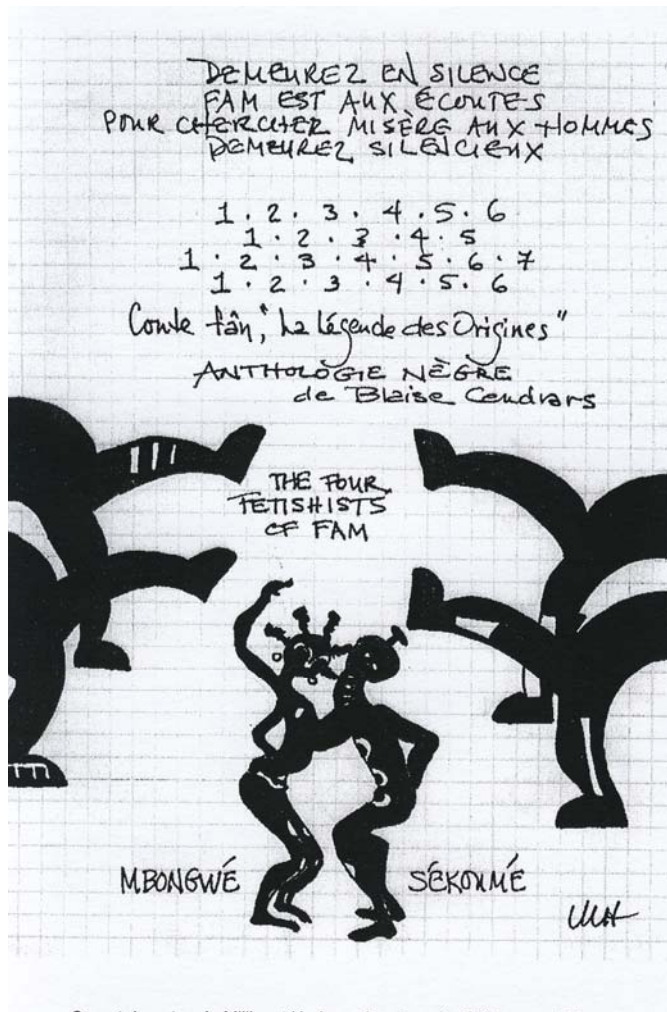 DEMEUREZ EN SILENCE
FAM EST AUX ÉCOUTES
POUR CHERCHER MISÈRE AUX HOMMES
DEMEUREZ SILENCIEUX
1 . 2 . 3 . 4 . 5 . 6
1 . 2 . 3 . 4 . 5
1 . 2 . 3 . 4 . 5 . 6 . 7
1 . 2 . 3 . 4 . 5 . 6
Conte fân, "La Légende des Origines"
ANTHOLOGIE NÈGRE
de Blaise Cendrars
THE FOUR
FETISHISTS
OF FAM
MBONGWÉ
SÉKOUMÉ